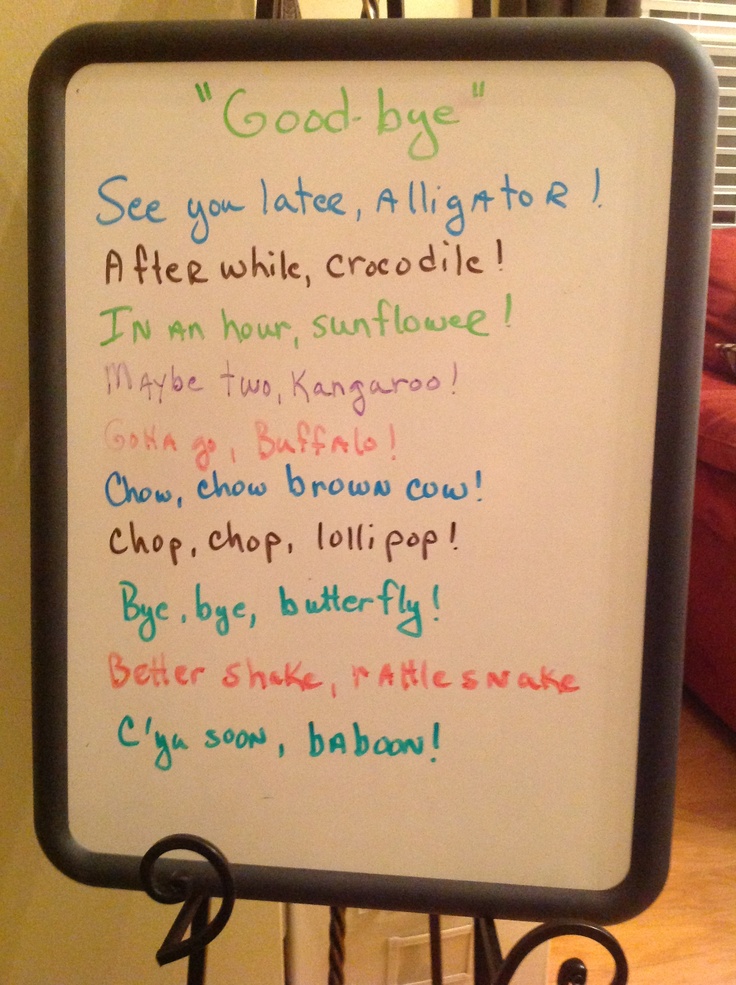 "Good-bye"
See you later, Alligator!
After while, crocodile!
In an hour, sunflower!
Maybe two, Kangaroo!
Gotta go, Buffalo!
Chow, chow brown cow!
Chop, chop, lollipop!
Bye, bye, butterfly!
Better shake, rattlesnake
C'ya soon, baboon!